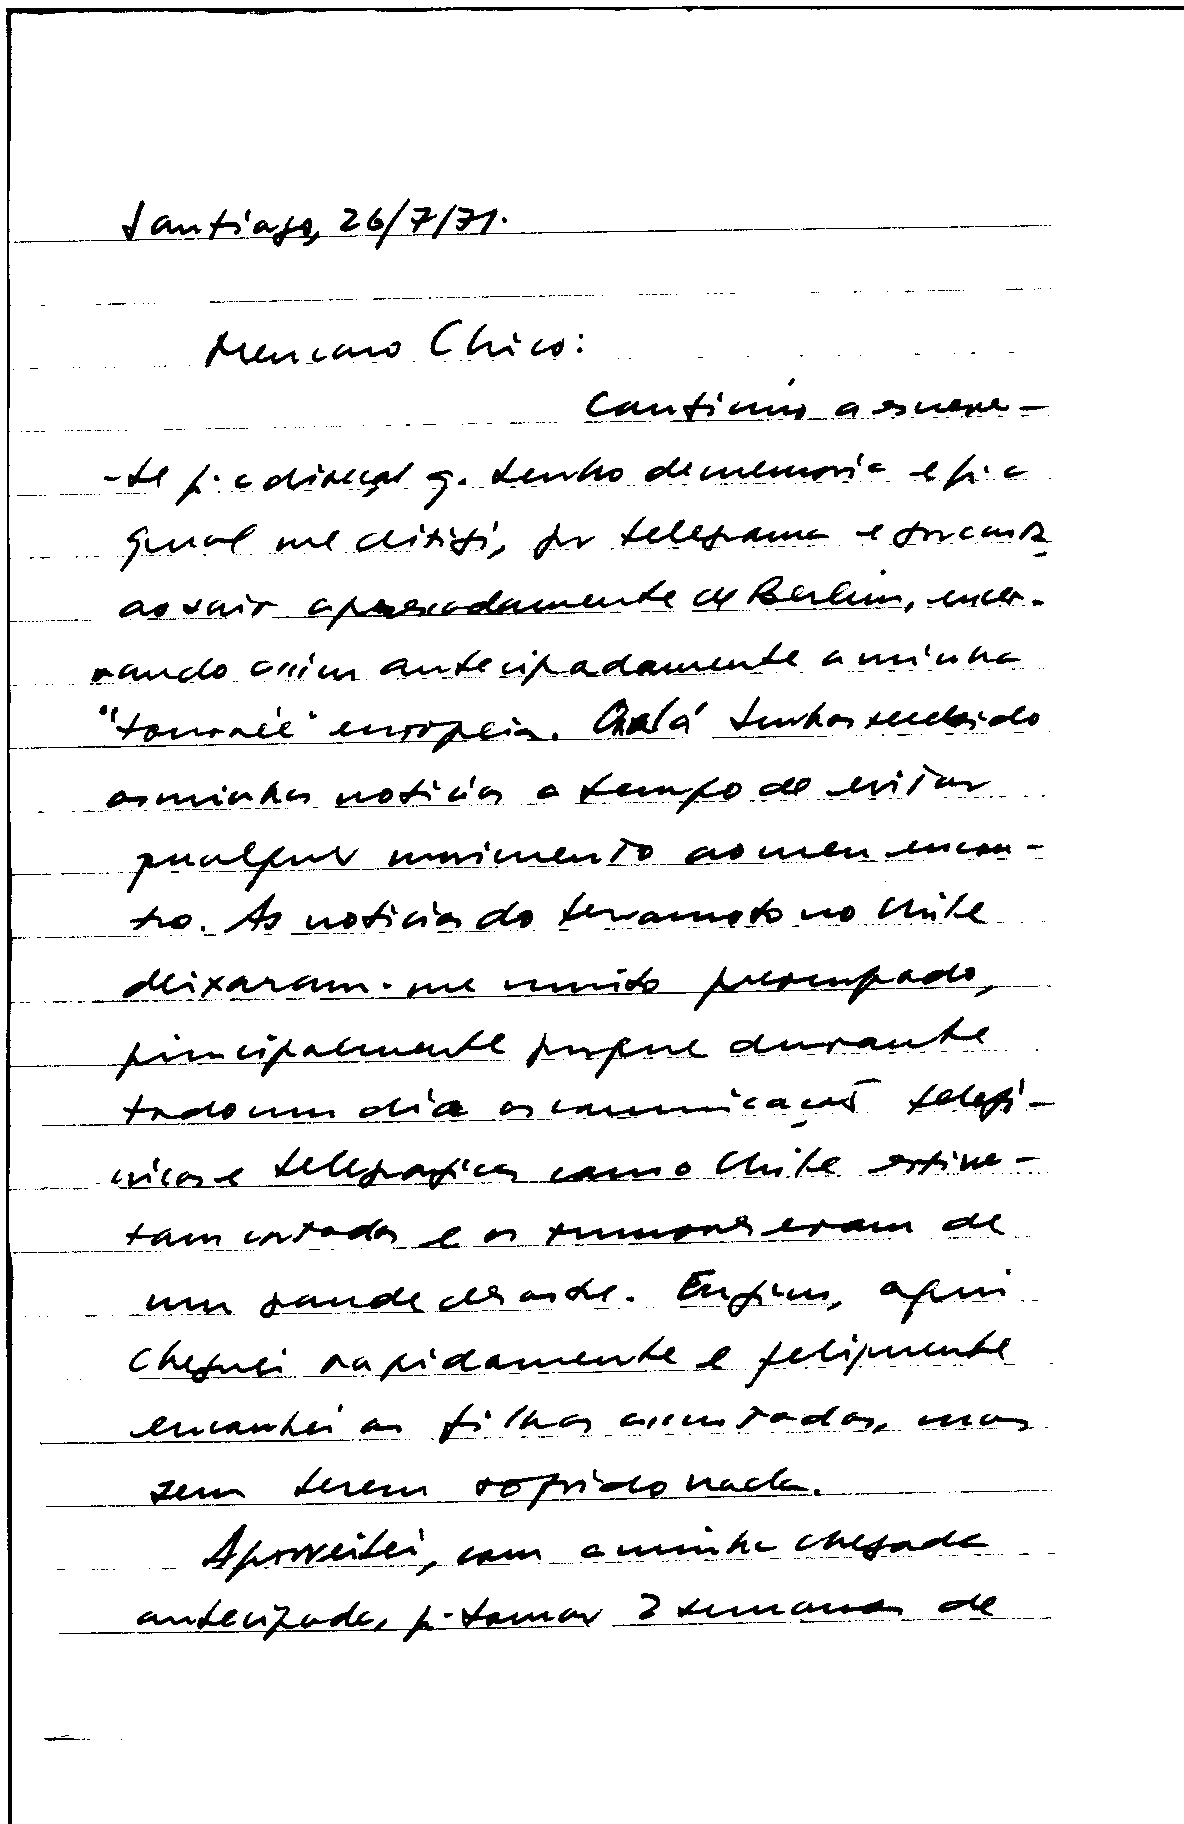 Santiago, 26/7/71.
Meu caro Chico:
Continúo a escrever-
-te p. a direcçaõ q. tenho de memoria e p. a
qual me dirigi, por telegrama e por carta
ao sair apressadamente de Berlim, encer-
rando assim antecipadamente a minha
"tournée" europeia. Oxalá tenhas recebido
as minhas noticias a tempo de evitar
qualquer movimento ao meu encon-
tro. As noticias do terramoto no Chile
deixaram-me muito preocupado,
principalmente porque durante
todo um dia as comunicações telefó-
nicas e telegraficas com o Chile estive-
ram cortadas e os rumores eram de
um grande desastre. Enfim, aqui
cheguei rapidamente e felizmente
encontrei as filhas assustadas, mas
sem terem sofrido nada.
Aproveitei, com a minha chegada
antecipada, p. tomar 2 semanas de